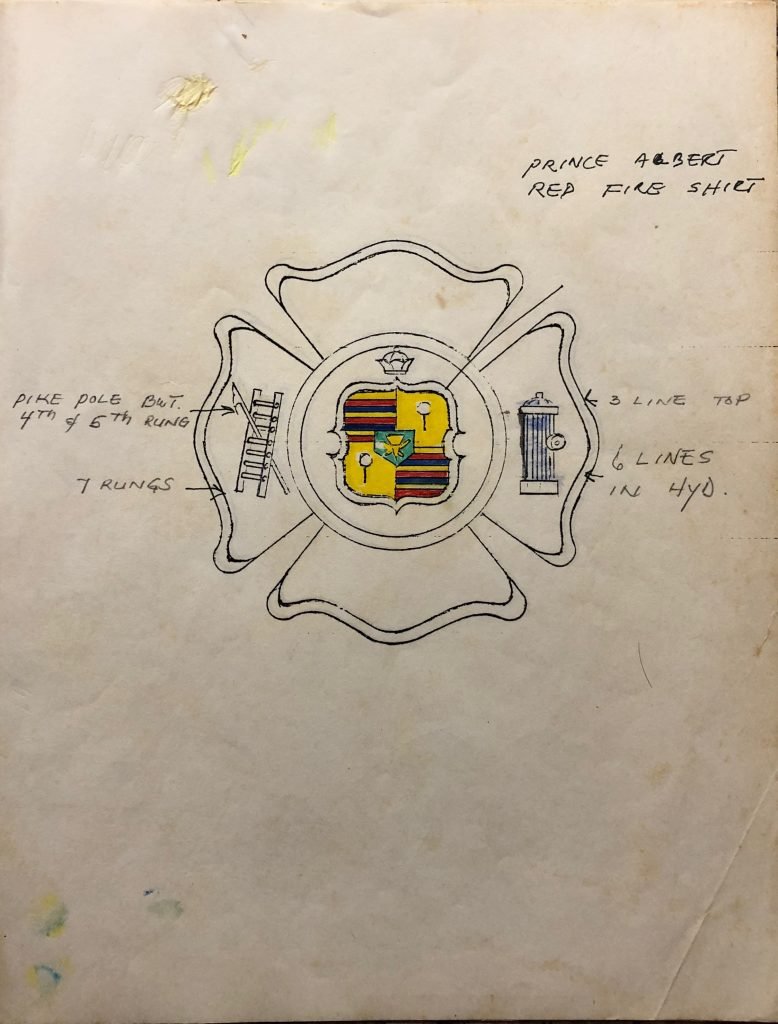 PRINCE ALBERT
RED FIRE SHIRT
PIKE POLE BWT.
4TH & 5TH RUNG
7 RUNGS
3 LINE TOP
6 LINES
IN HYD.